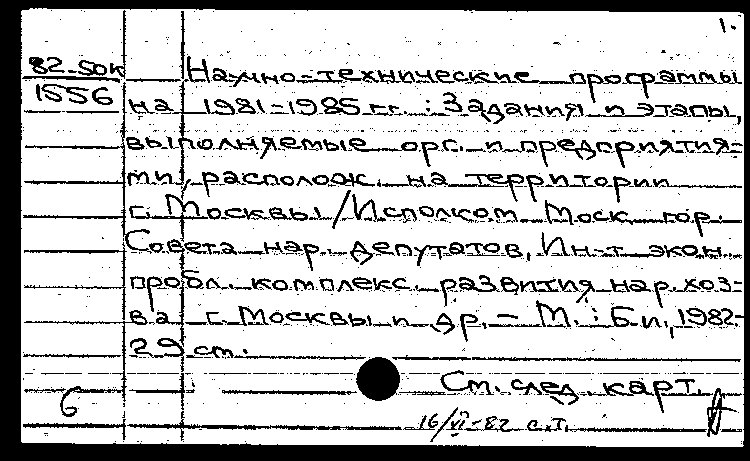 1.
82-50к
1556
Научно-технические программы
на 1981-1985 гг. : Задания и этапы,
выполняемые орг. и предприятия-
ми, располож. на территории
г. Москвы / Исполком Моск. гор.
Совета нар. депутатов, Ин-т экон.
пробл. комплекс. развития нар. хоз-
ва г. Москвы и др. – М. : Б.и., 1982.-
29 см.
См. след. карт.
6
16/VI-82 с.т.